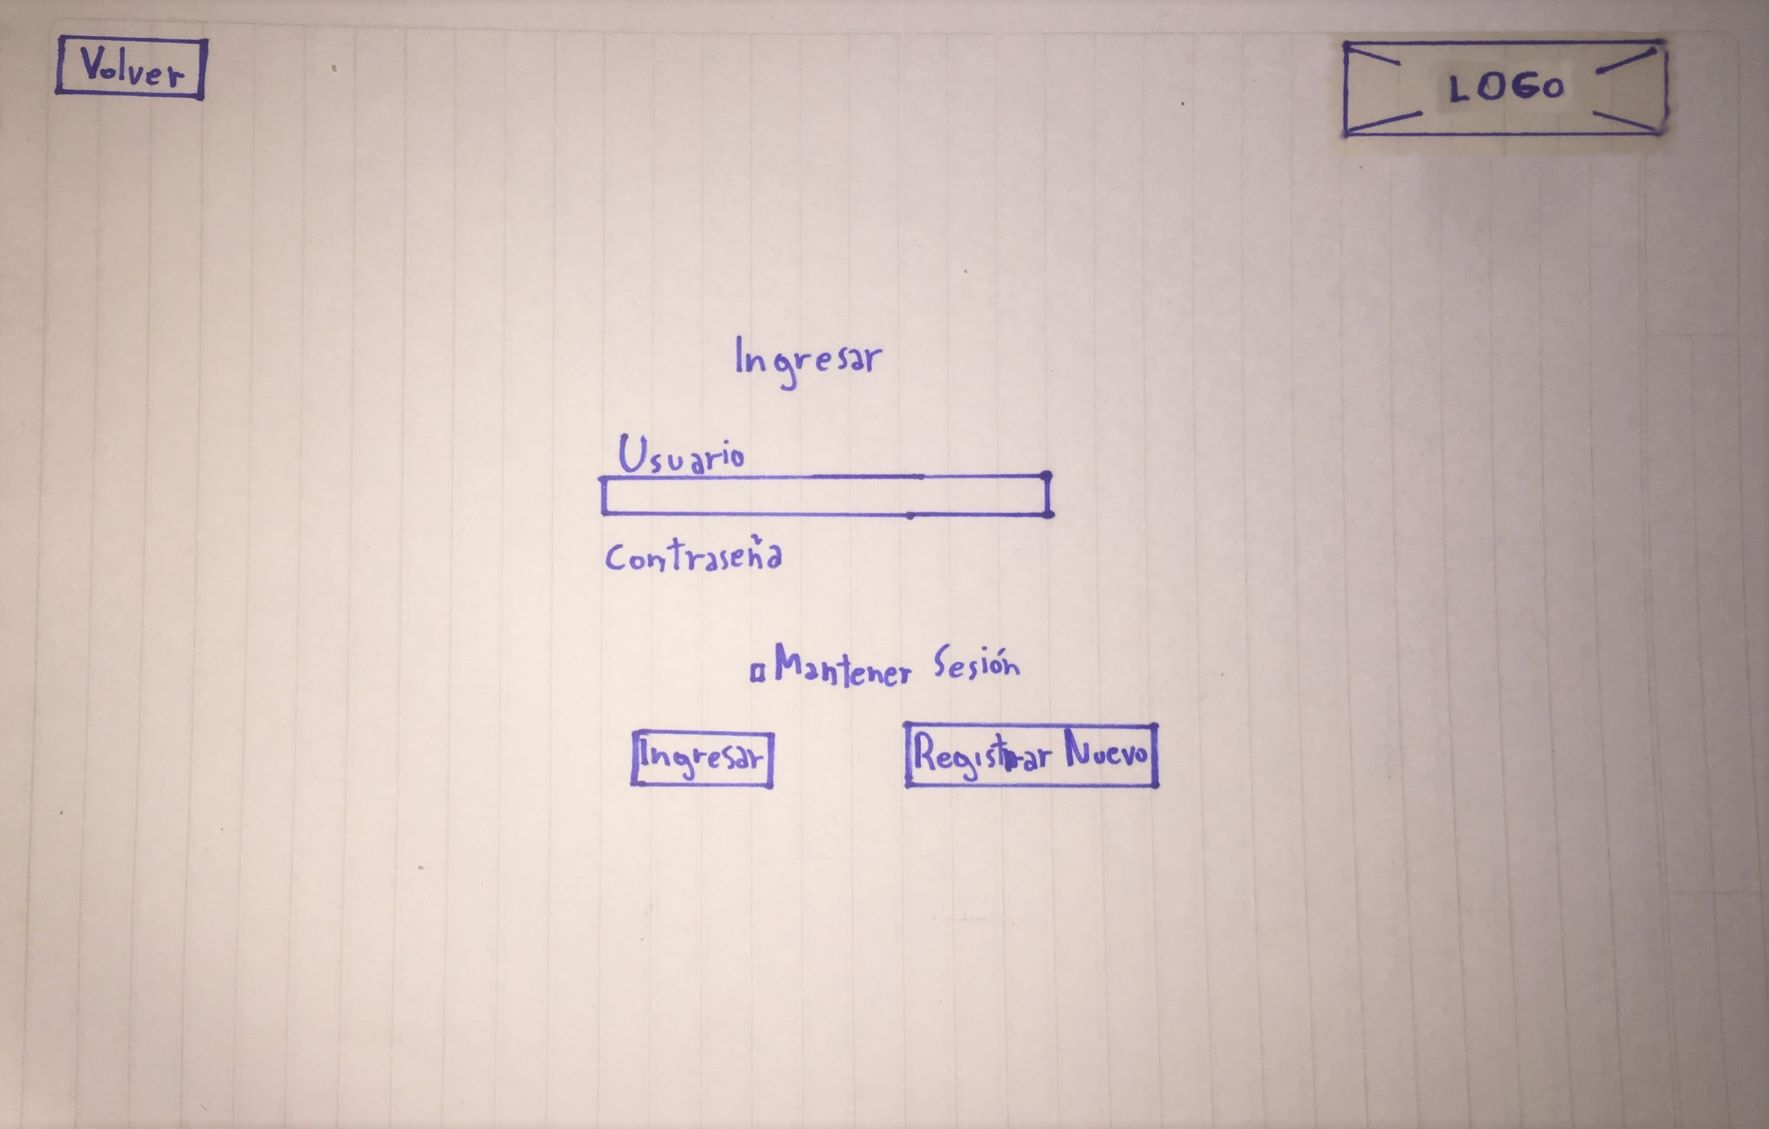 Volver
LOGO
Ingresar
Usuario
Contraseña
Mantener Sesión
Ingresar
Registrar Nuevo